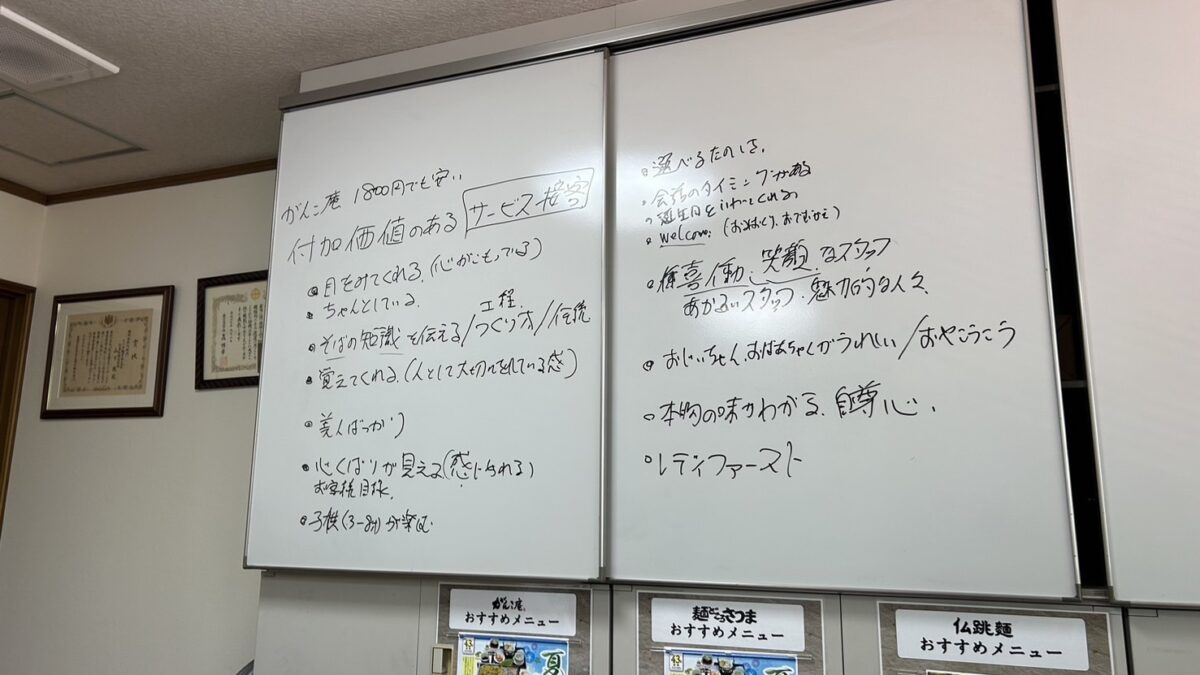 がんこ庵 1800円でも安い
付加価値のある サービス接客
目をみてくれる、(心がこもってる)
ちゃんとしている、
そばの知識を伝える/工程、つくり方/伝統
覚えてくれる、(人として大切にされている感)
美人ばっかり
心くばりが見える(感じられる)
お客様目線、
子供(3-8才)が楽しむ
選べるたのしさ、
会話のタイミングがある
誕生日をいわってくれる
Welcome (おみおくり、おでむかえ)
喜働、笑顔なスタッフ
あかるいスタッフ、魅力的な人々、
おじいちゃん、おばあちゃんがうれしい/おやこうこう
本物の味がわかる、自尊心、
レディファースト
がんこ庵
おすすめメニュー
麺どころさつま
おすすめメニュー
仏跳麺
おすすめメニュー
夏